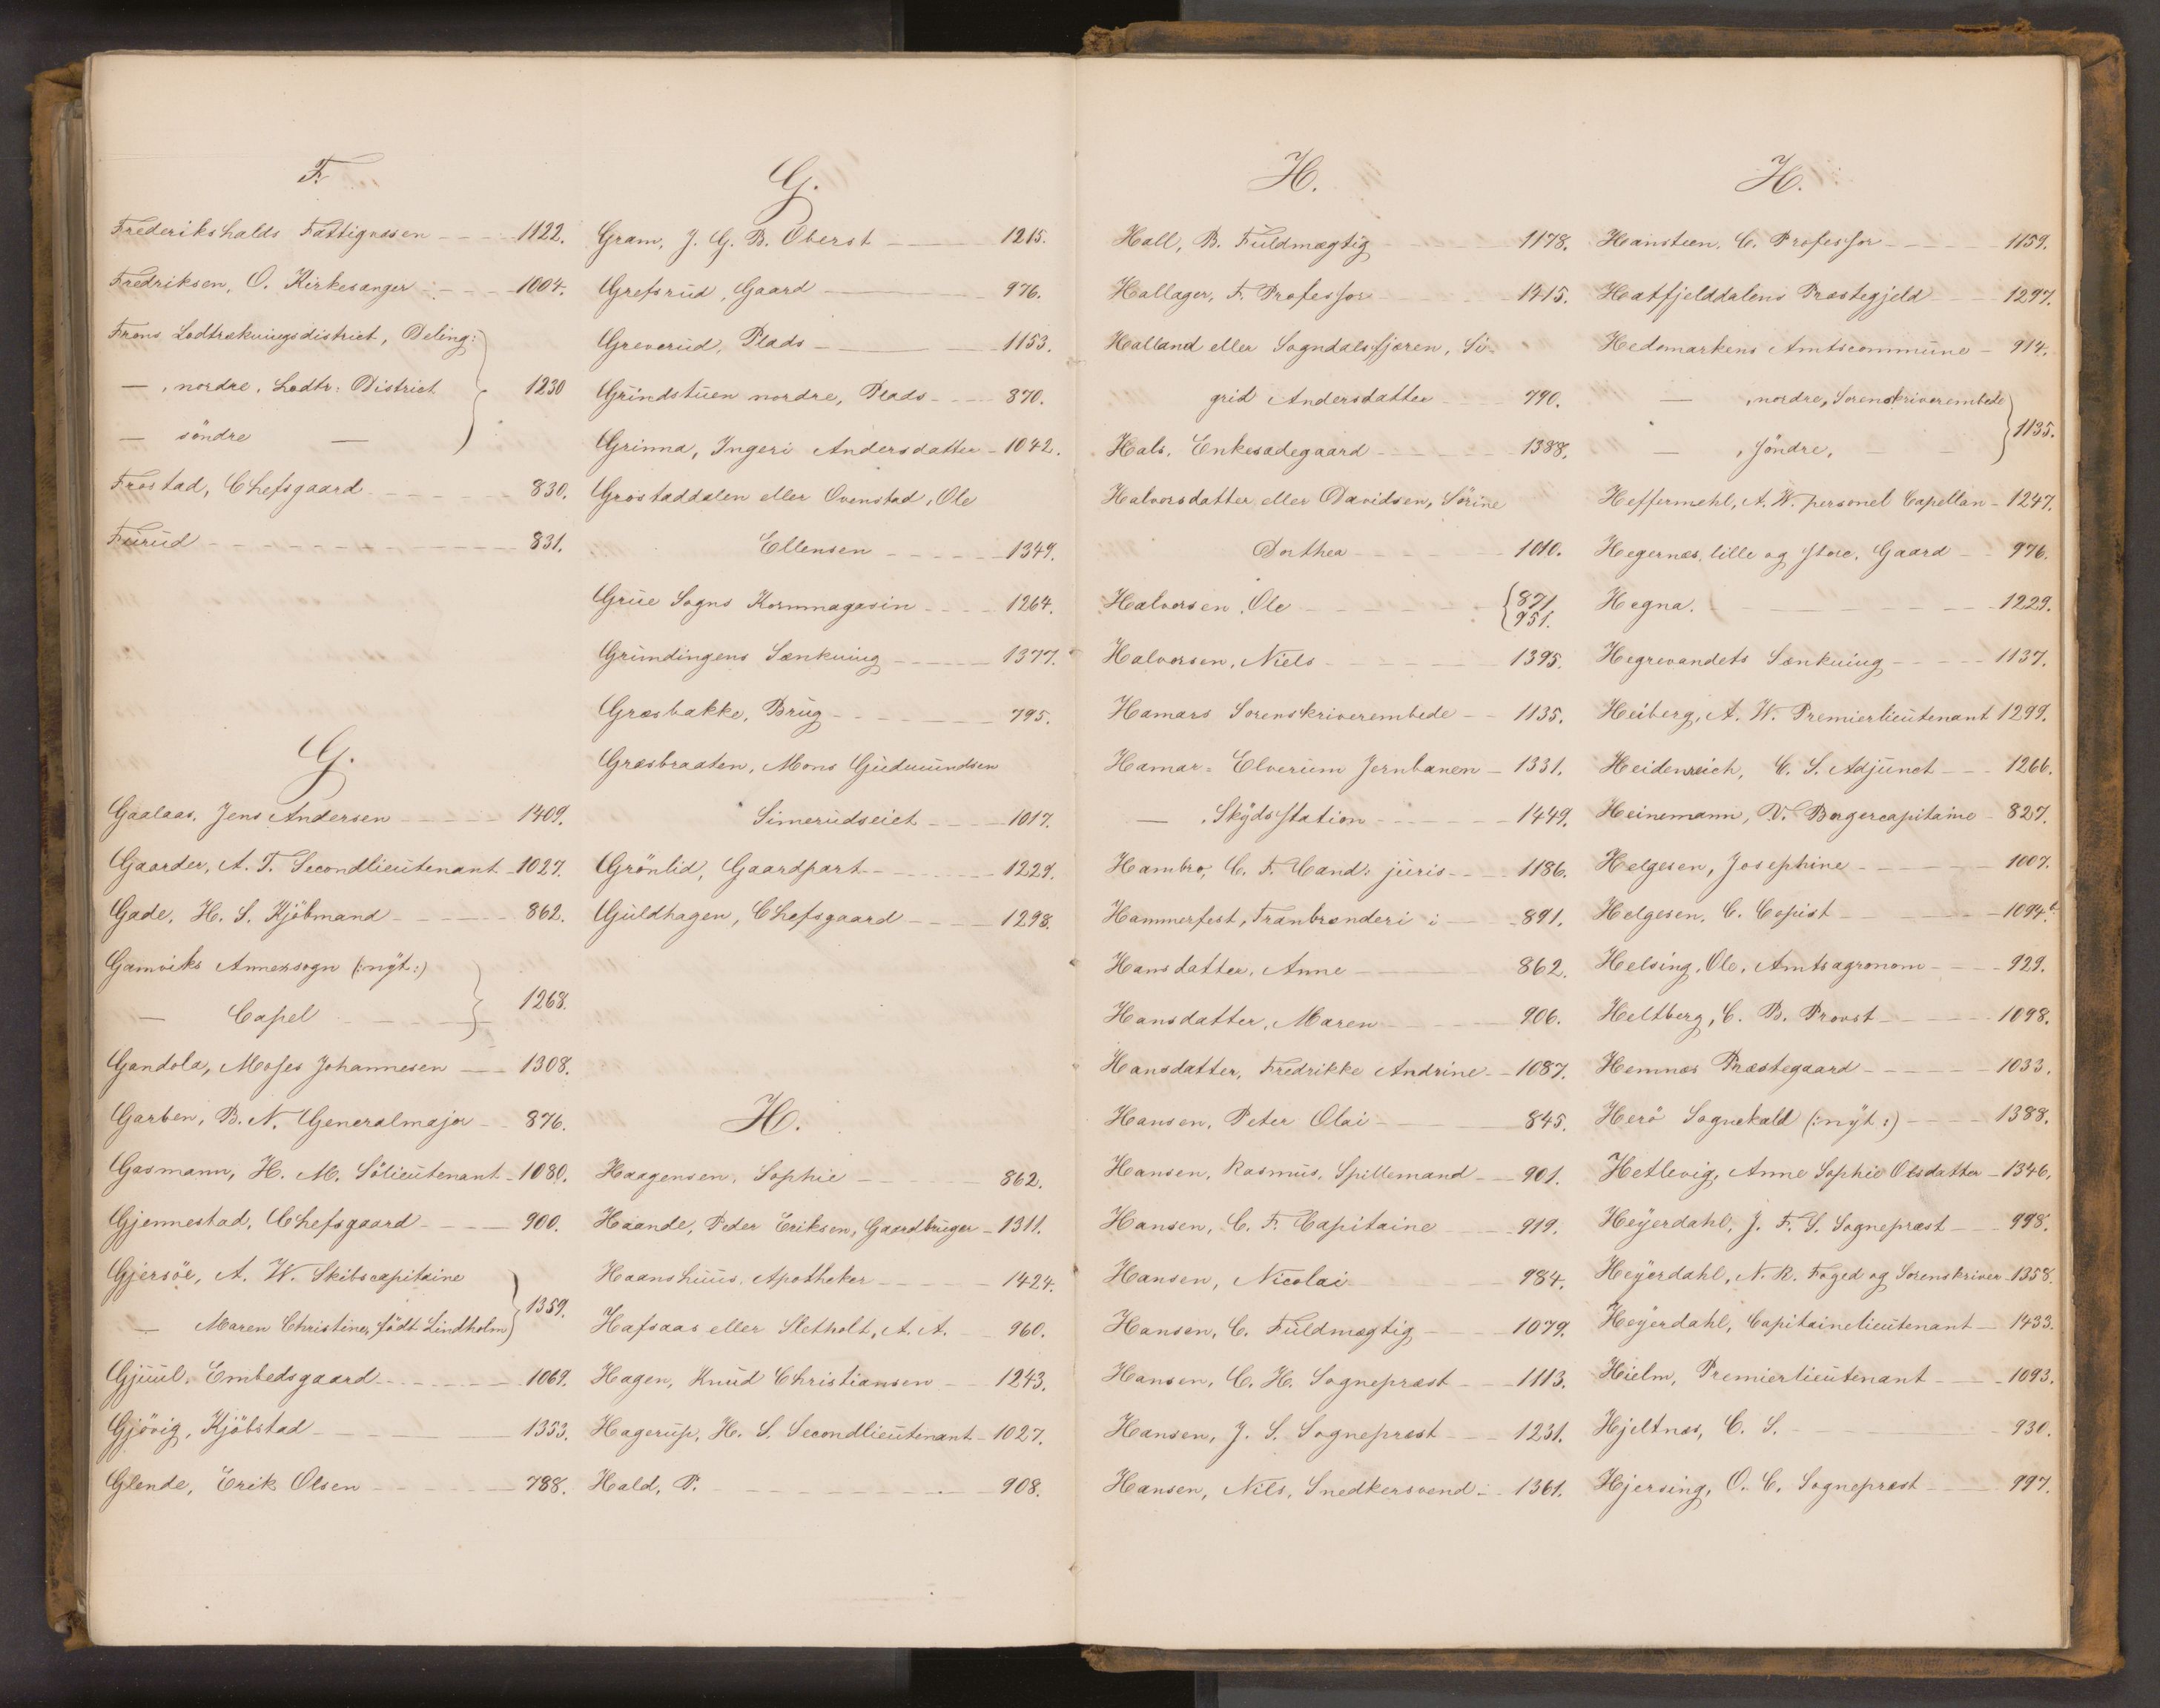 F.
Frederikshalds Fattigvæsen 1122.
Fredriksen, O. Kirkesanger 1004.
Frons Lodtrækningsdistrict, Deling:
— , nordre, Lodtr: District } 1230
— söndre —
Frostad, Chefsgaard 830.
Furud 831.
G.
Gaalaas, Jens Andersen 1409.
Gaarder, A. T. Secondlieutenant 1027.
Gade, H. S. Kjöbmand 862.
Gamviks Annexsogn (:nyt:)
— Capel } 1268.
Gandola, Moses Johannesen 1308.
Garben, B. N. Generalmajor 876.
Gasmann, H. M. Sölieutenant 1080.
Gjennestad, Chefsgaard 900.
Gjersöe, A. W. Skibscapitaine
— Maren Christine, födt Lindholm } 1359.
Gjuul, Embedsgaard 1069.
Gjövig, Kjöbstad 1353.
Glende, Erik Olsen 788.
G.
Gram, J. G. B. Oberst 1215.
Grefsrud, Gaard 976.
Greverud, Plads 1153.
Grindstuen nordre, Plads 870.
Grinna, Ingeri Andersdatter 1042.
Grostaddalen eller Ovenstad, Ole
Ellensen 1349.
Grue Sogns Kornmagasin 1264.
Grundingens Sænkning 1377.
Græsbakke, Brug 795.
Græsbraaten, Mons Gudmundsen
Simerudseiet 1017.
Grönlid, Gaardpart 1229.
Guldhagen, Chefsgaard 1298.
H.
Haagensen, Sophie 862.
Haande, Peder Eriksen, Gaardbruger 1311.
Haanshuus, Apotheker 1424.
Hafsaas eller Sletholt, A. A. 960.
Hagen, Knud Christiansen 1243.
Hagerup, H. S. Secondlieutenant 1027.
Hald, P. 908.
H.
Hall, B. Fuldmægtig 1178.
Hallager, F. Professor 1415.
Halland eller Sogndalsfjæren, Si-
grid Andersdatter 790.
Hals, Enkesædegaard 1388.
Halvorsdatter eller Davidsen, Sörine
Dorthea 1010.
Halvorsen, Ole { 871.
951.
Halvorsen, Niels 1395.
Hamars Sorenskriverembede 1135.
Hamar-Elverum Jernbanen 1331.
— , Skydsstation 1449.
Hambro, C. F. Cand: juris 1186.
Hammerfest, Tranbrænderi i 891.
Hansdatter, Anne 862.
Hansdatter, Maren 906.
Hansdatter, Fredrikke Andrine 1087.
Hansen, Peter Olai 845.
Hansen, Rasmus, Spillemand 901.
Hansen, C. F. Capitaine 919.
Hansen, Nicolai 984.
Hansen, C. Fuldmægtig 1079.
Hansen, C. H. Sognepræst 1113.
Hansen, J. S. Sognepræst 1231.
Hansen, Nils, Snedkersvend 1361.
H.
Hansteen, C. Professor 1159.
Hatfjelddalens Præstegjeld 1297.
Hedemarkens Amtscommune 914.
— , nordre, Sorenskriverembede
— , söndre, — } 1135.
Heffermehl, A. W. personel Capellan 1247.
Hegernæs, lille og store, Gaard 976.
Hegna. 1229.
Hegrevandets Sænkning 1137.
Heiberg, A. W. Premierlieutenant 1299.
Heidenreich, C. S. Adjunct 1266.
Heinemann, V. Borgercapitaine 827.
Helgesen, Josephine 1007.
Helgesen, C. Copist 1094b.
Helsing, Ole, Amtsagronom 929.
Heltberg, C. B. Provst 1098.
Hemnæs Præstegaard 1033.
Herö Sognekald (:nyt:) 1388.
Hetlevig, Anne Sophie Olsdatter 1346.
Heyerdahl, J. F. S. Sognepræst 998.
Heyerdahl, N. R. Foged og Sorenskriver 1358.
Heyerdahl, Capitainelieutenant 1433.
Hielm, Premierlieutenant 1093.
Hjeltnæs, C. S. 930.
Hjersing, O. C. Sognepræst 997.